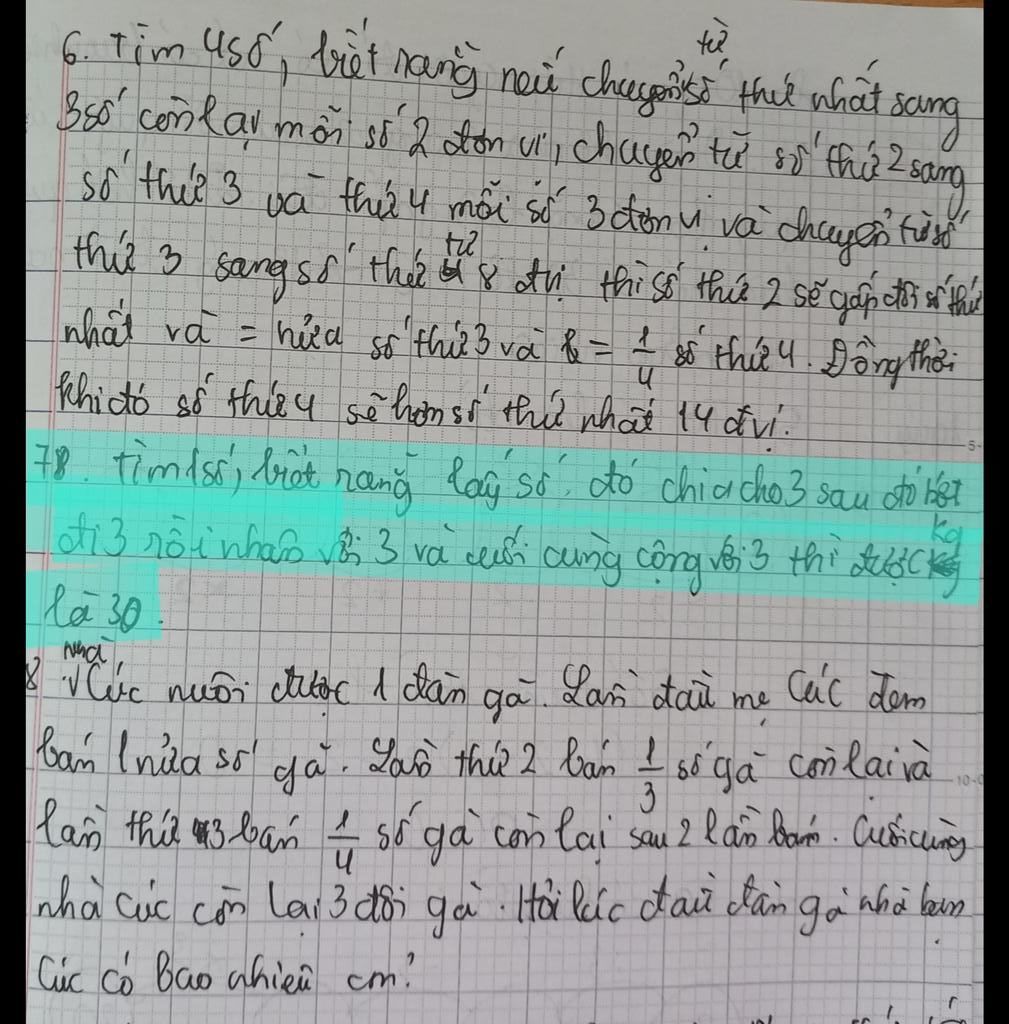 6. Tìm 4 số, biết rằng nếu chuyển từ số thứ nhất sang
3 số còn lại mỗi số 2 đơn vị, chuyển từ số thứ 2 sang
số thứ 3 và thứ 4 mỗi số 3 đơn vị và chuyển từ số
thứ 3 sang số thứ tư 8 đvị thì số thứ 2 sẽ gấp đôi số thứ
nhất và = nửa số thứ 3 và = 1/4 số thứ 4. Đồng thời
khi đó số thứ 4 sẽ hơn số thứ nhất 14 đvị.
78. Tìm 1 số, biết rằng lấy số đó chia cho 3 sau đó bớt
đi 3 rồi nhân với 3 và cuối cùng cộng với 3 thì được kq
là 30.
8 Nhà Cúc nuôi được 1 đàn gà. Lần đầu mẹ Cúc đem
bán 1 nửa số gà. Lần thứ 2 bán 1/3 số gà còn lại và
lần thứ 3 bán 1/4 số gà còn lại sau 2 lần bán. Cuối cùng
nhà Cúc còn lại 3 đôi gà. Hỏi lúc đầu đàn gà nhà bạn
Cúc có Bao nhiêu con?